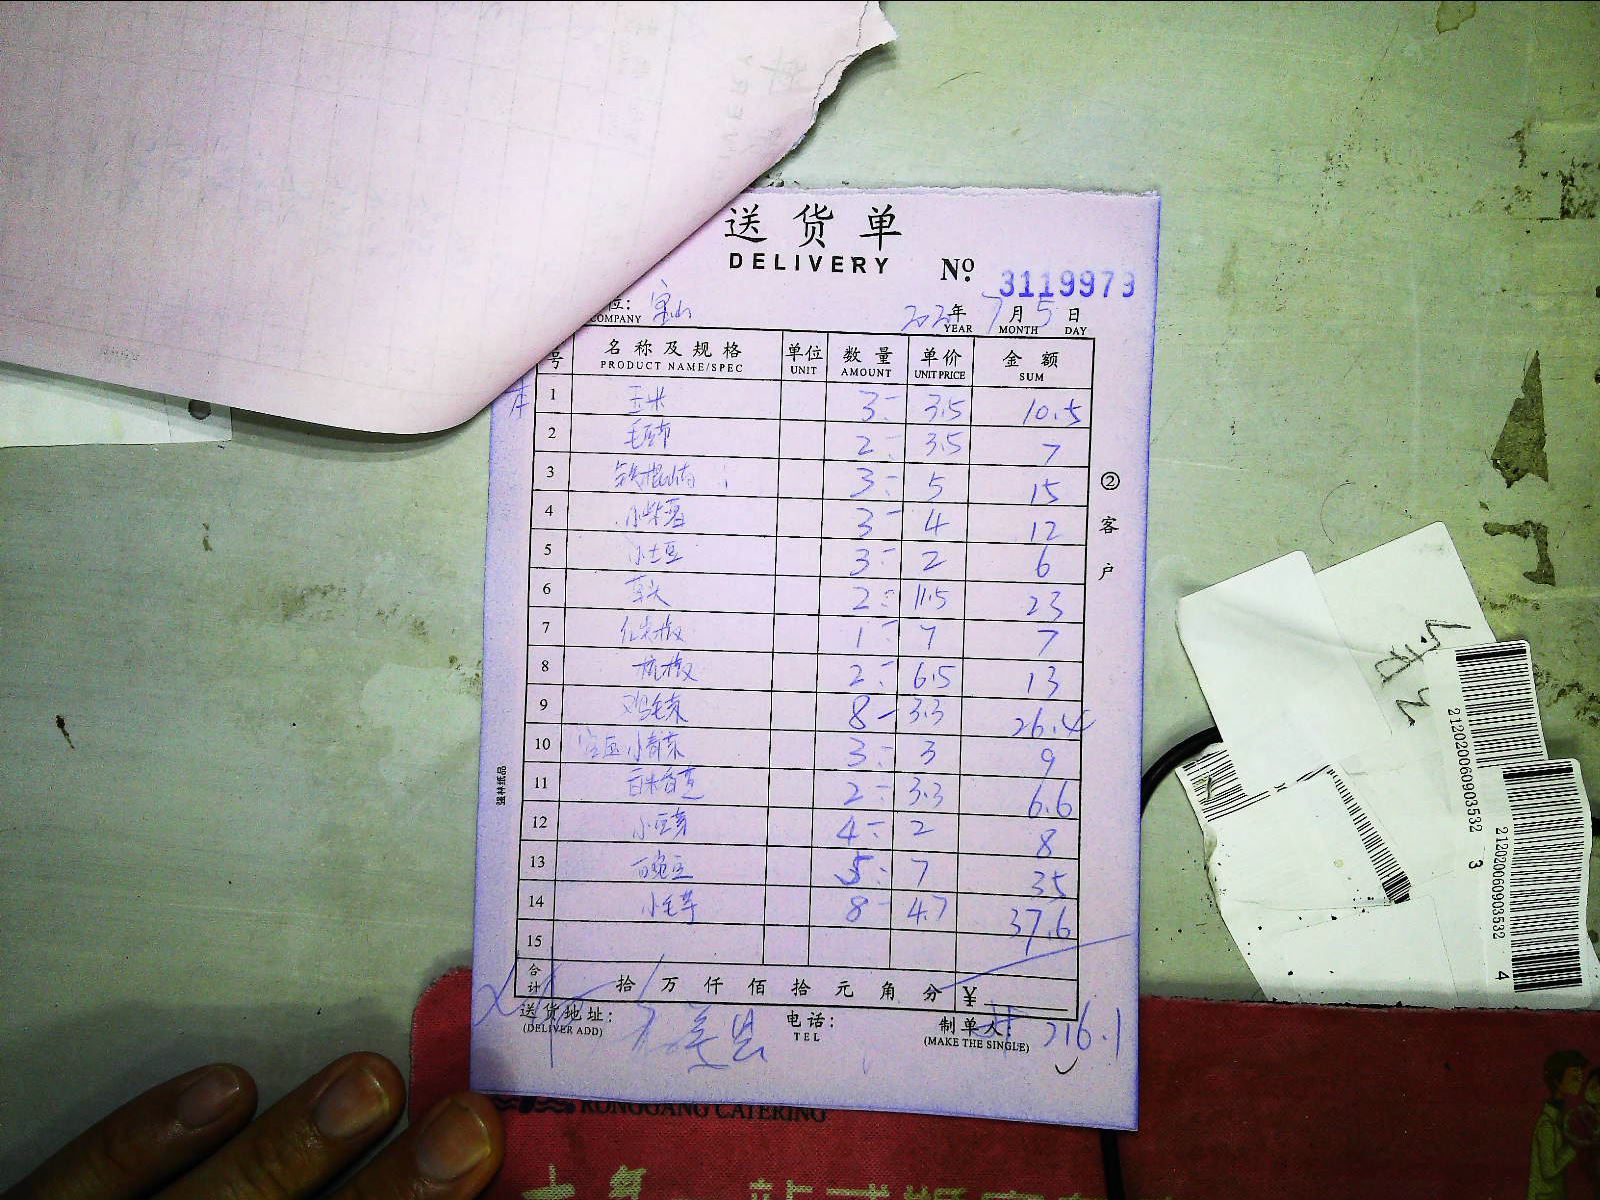 送货单
DELIVERY
No 3119979
位: 宝山 2020年 7月 5日
COMPANY YEAR MONTH DAY
号 名称及规格 单位 数量 单价 金额
PRODUCT NAME/SPEC UNIT AMOUNT UNIT PRICE SUM
1 玉米 3 3.5 10.5
2 毛豆节 2 3.5 7
3 铁棍山药 3 5 15
4 小紫薯 3 4 12
5 小土豆 3 2 6
6 草头 2 11.5 23
7 红尖椒 1 7 7
8 杭椒 2 6.5 13
9 鸡毛菜 8 3.3 26.4
10 小青菜 3 3 9
11 白米苋 2 3.3 6.6
12 小豆芽 4 2 8
13 豌豆 5 7 35
14 小毛芋 8 4.7 37.6
15
合计 拾 万 仟 佰 拾 元 角 分 ¥
送货地址: 电话: 制单人:
(DELIVER ADD) TEL (MAKE THE SINGLE)
216.1
②客户
强林纸品
212020060903532 3
212020060903532 4
RONGGANG CATERING